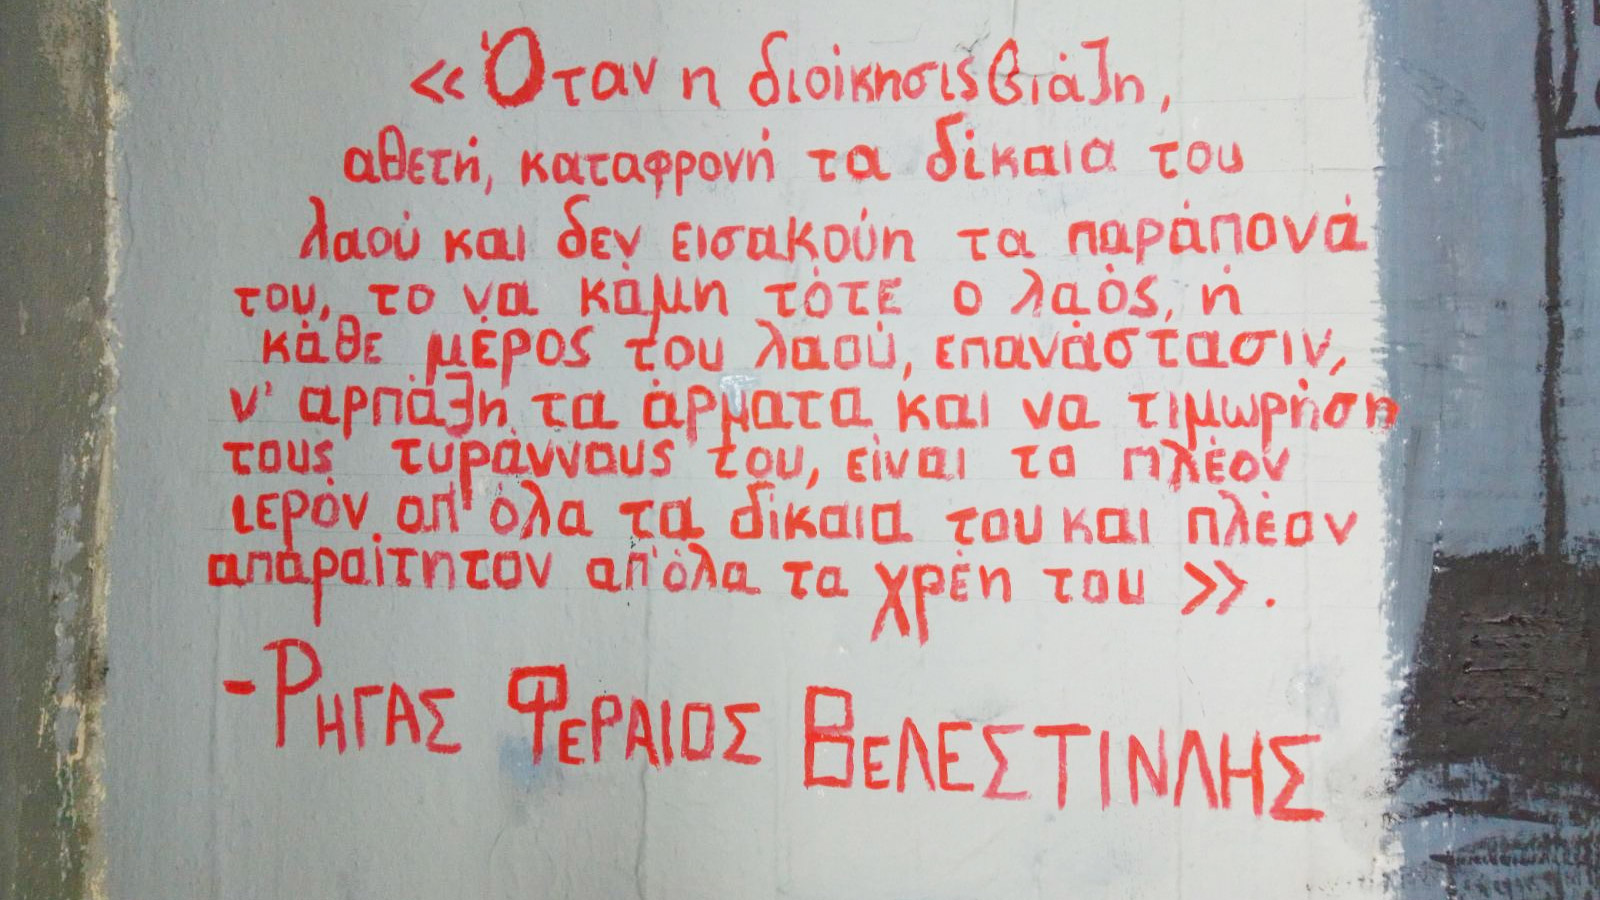 «Όταν η διοίκησις βιάζη,
αθετή, καταφρονή τα δίκαια του
λαού και δεν εισακούη τα παράπονά
του, το να κάμη τότε ο λαός, ή
κάθε μέρος του λαού, επανάστασιν,
ν' αρπάζη τα άρματα και να τιμωρήση
τους τυράννους του, είναι το πλέον
ιερόν απ' όλα τα δίκαια του και πλέον
απαραίτητον απ' όλα τα χρέη του».
-ΡΗΓΑΣ ΦΕΡΑΙΟΣ ΒΕΛΕΣΤΙΝΛΗΣ